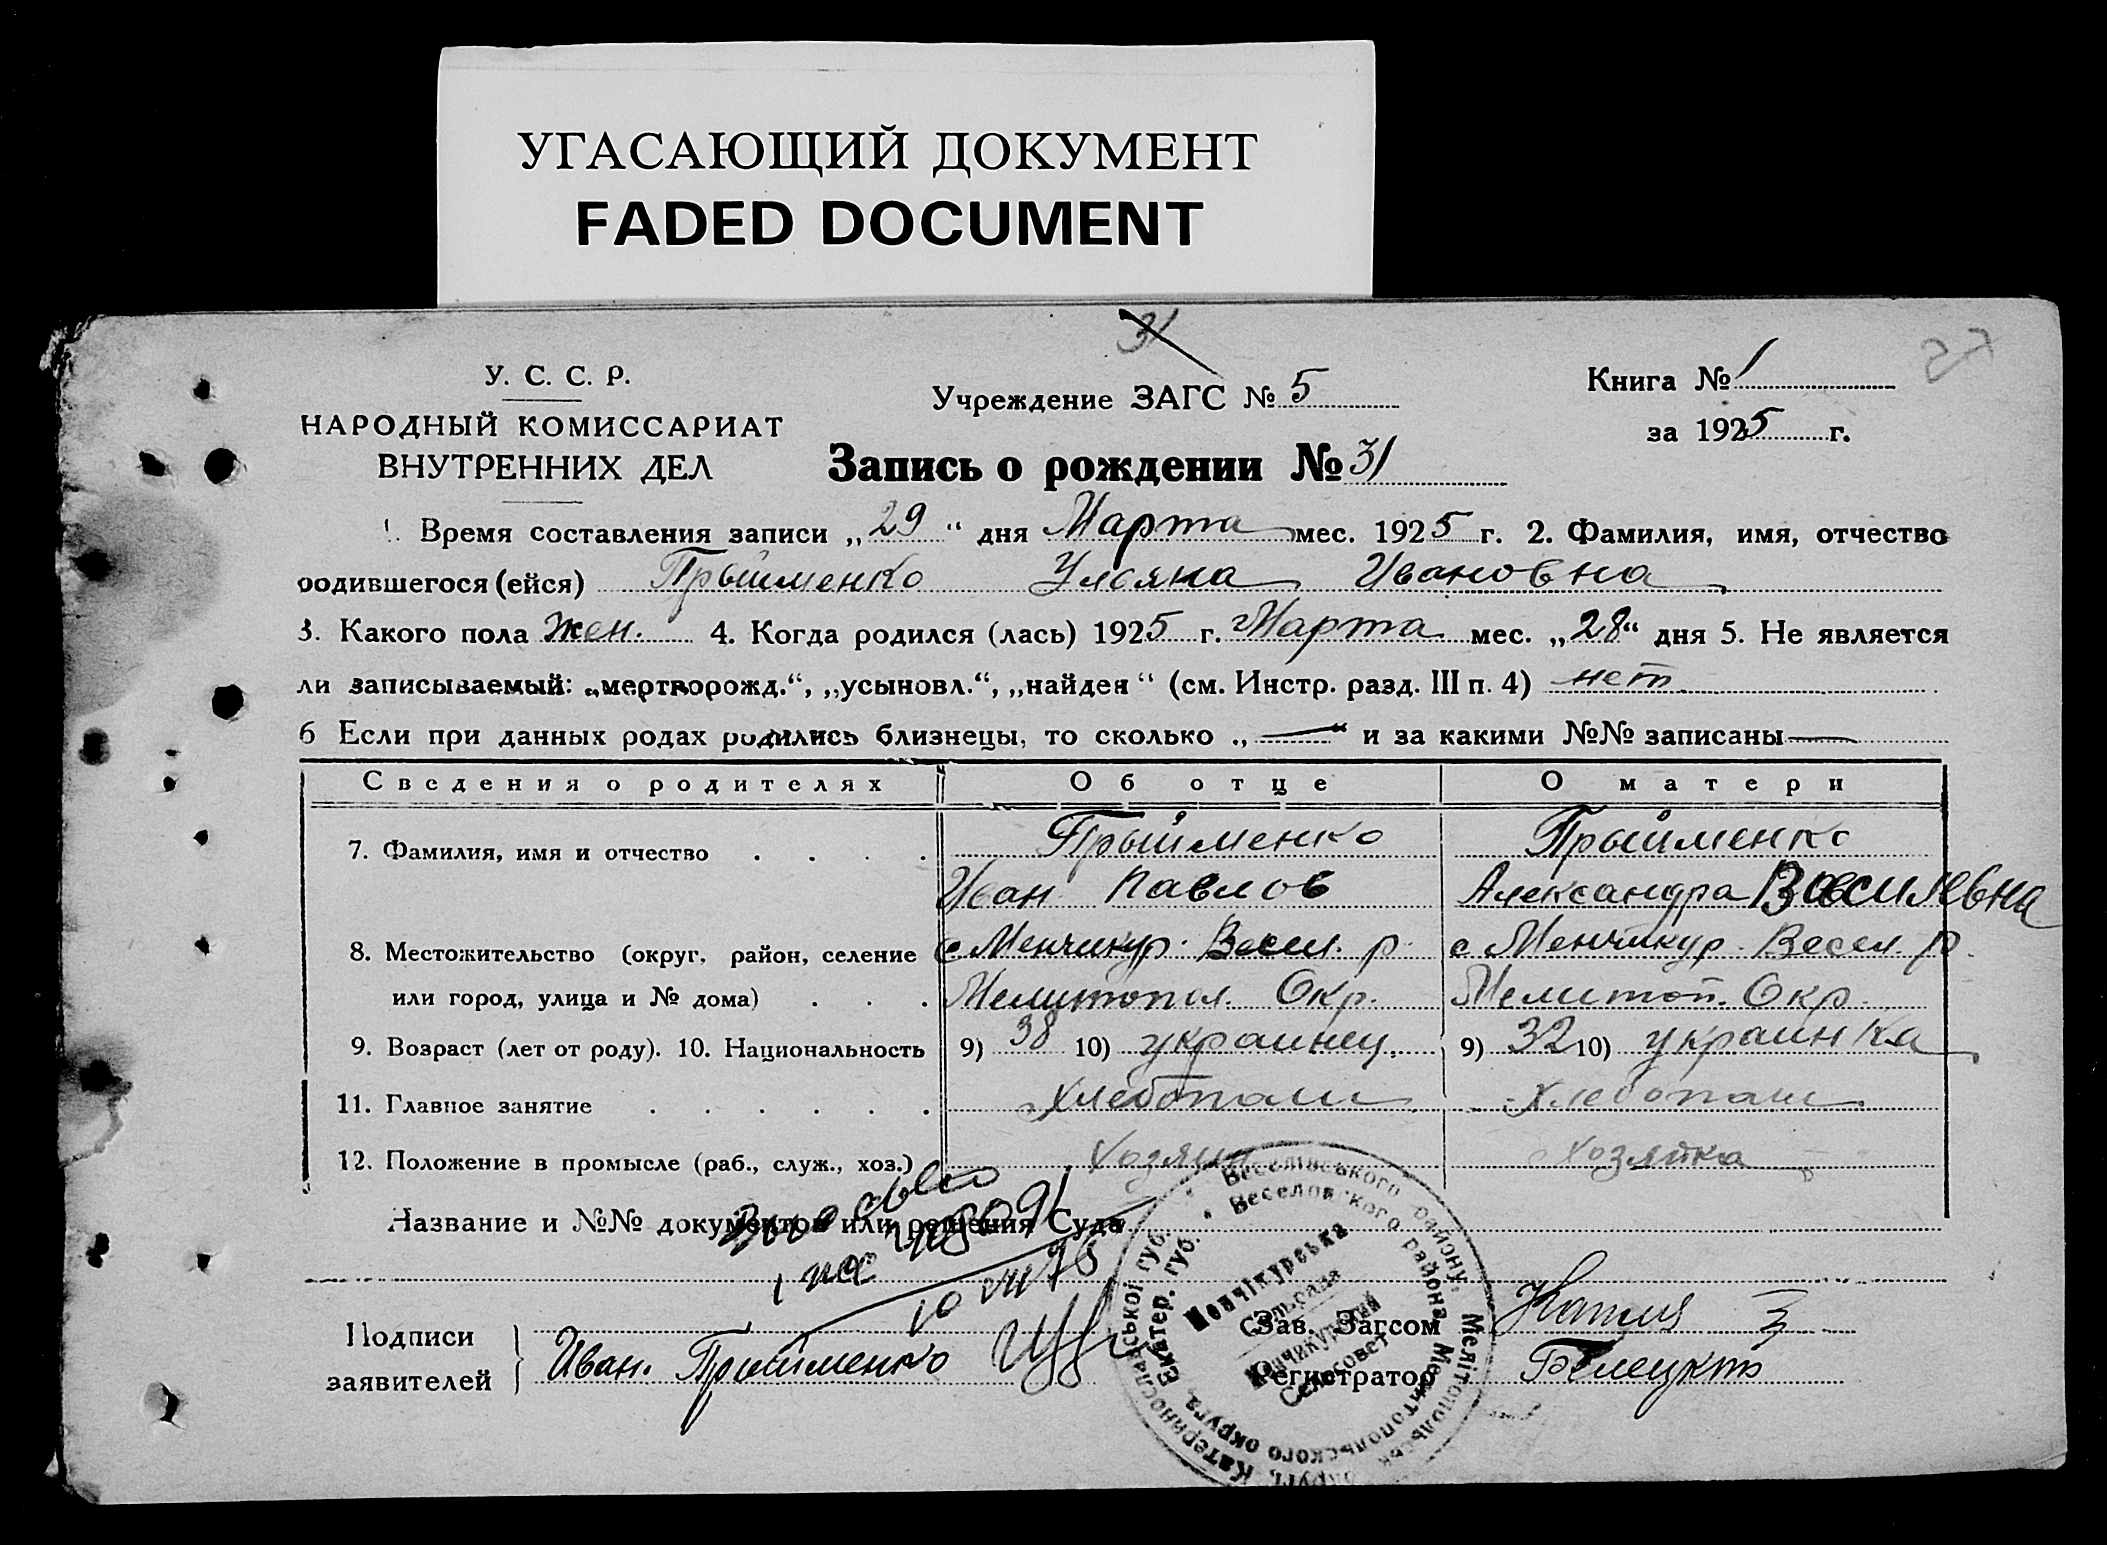 УГАСАЮЩИЙ ДОКУМЕНТ
FADED DOCUMENT
31
27
У. С. С. Р.
НАРОДНЫЙ КОМИССАРИАТ
ВНУТРЕННИХ ДЕЛ
Учреждение ЗАГС № 5
Книга № 1
за 1925 г.
Запись о рождении № 31
1. Время составления записи „29“ дня Марта мес. 1925 г. 2. Фамилия, имя, отчество
родившегося (ейся) Прыйменко Ульяна Ивановна
3. Какого пола жен. 4. Когда родился (лась) 1925 г. Марта мес. „28“ дня 5. Не является
ли записываемый: „мертворожд.“, „усыновл.“, „найден“ (см. Инстр. разд. III п. 4) нет.
6 Если при данных родах родились близнецы, то сколько „—“ и за какими №№ записаны —
Сведения о родителях Об отце О матери
7. Фамилия, имя и отчество . . . . Прыйменко Прыйменко
Иван Павлов Александра Васильевна
8. Местожительство (округ, район, селение с Менчикур. Весел. р. с Менчикур. Весел. р.
или город, улица и № дома) . . . Мелитопол. Окр. Мелитоп. Окр.
9. Возраст (лет от роду). 10. Национальность 9) 38 10) украинец. 9) 32 10) украинка
11. Главное занятие . . . . . . Хлебопаш Хлебопаш
12. Положение в промысле (раб., служ., хоз.) Хозяин Хозяйка
Название и №№ документов или решения Суда
Подписи
заявителей
Иван. Прыйменко
Зав. Загсом
Регистратор
Веселівського району, Мелітопольськ округи, Катеринославської губ.
Веселовского района, Мелитопольского округа, Екатер. губ.
Менчікурська
Сільрада
Менчикурский
Сельсовет